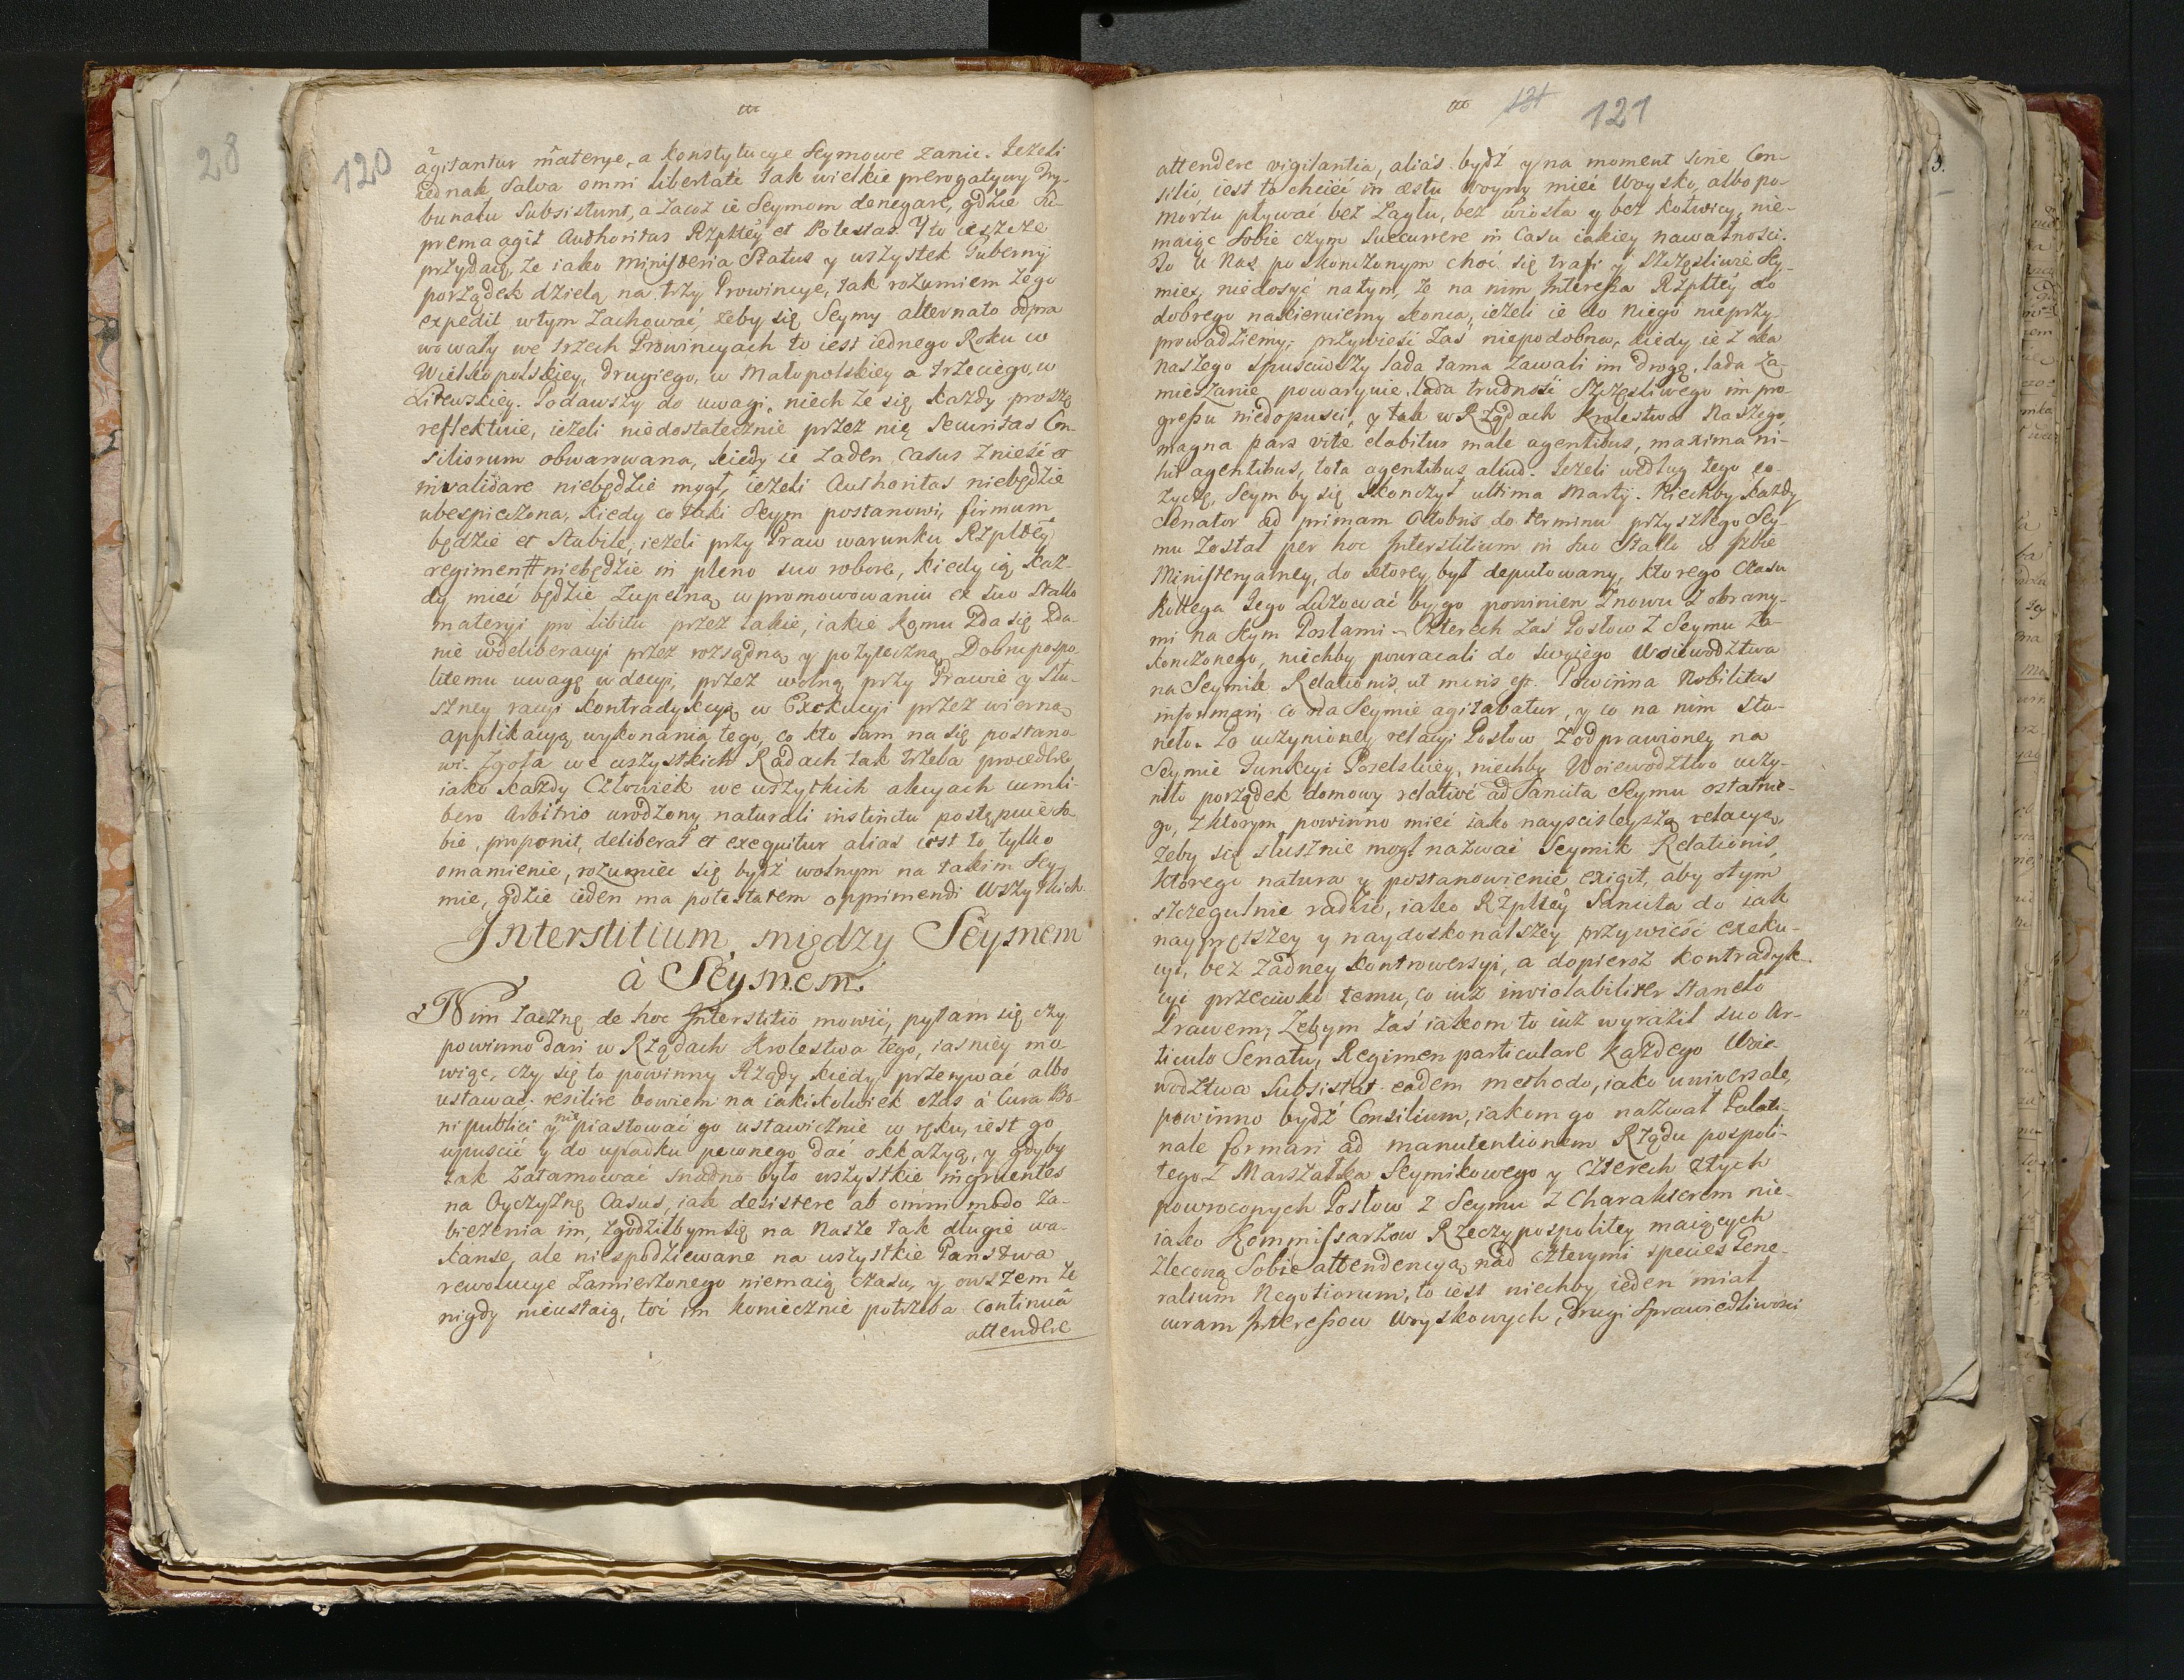 28
120
agitantur materye, a konstytucye Seymowe zanic. Jeżeli
iednak Salva omni libertate tak wielkie prerogatywy Try-
bunału Subsistunt, a zacoż ie Seymom denegare, gdzie Su-
prema agit Authoritas Rzpltey et Potestas. Y to ieszcze
przydaię, że iako Ministeria Status y wszystek Guberny
porządek dzielą na trzy Prowincye, tak rozumiem zego
expedit wtym zachować, żeby się Seymy alternato odpra
wowały we trzech Prowincyach to iest iednego Roku w
Wielkopolskiey, drugiego, w Małopolskiey a trzeciego, w
Litewskiey. Podawszy do uwagi, niech że się każdy proszę
reflektuie, ieżeli niedostatecznie przez nię Securitas Con-
siliorum obwarwana, kiedy ie żaden casus znieść et
invalidare niebędzie mogł, ieżeli Authoritas niebędzie
ubespieczona, kiedy co taki Seym postanowi, firmum
będzie et stabile, ieżeli przy Praw warunku Rzpltey
regimen # niebędzie in pleno suo robore, kiedy ią każ-
dy mieć będzie zupełną w promowowaniu ex suo Stallo
materyi pro libitu przez takie, iakie komu zda się zda-
nie w deliberacyi przez rozsądną y pożyteczną Dobru pospo-
litemu uwagę w decyzyi, przez wolną przy Prawie y słu-
szney racyi kontradykcyą w Exekucyi przez wierną
applikacyą wykonania tego, co kto sam na się postano
wi. Zgoła we wszystkich Radach tak trzeba procedere,
iako każdy Człowiek we wszytkich akcyach cum li-
bero Arbitrio urodzony naturali instinctu postępuie so-
bie, proponit, deliberat et exequitur alias iest to tylko
omamienie, rozumieć się bydź wolnym na takim Sey-
mie, gdzie ieden ma potestatem opprimendi wszytkich
Interstitium między Seymem
à Seymem.
Nim zacznę de hoc Interstitio mowić, pytam się czy
powinno dari w Rządach Krolestwa tego, iasniey mo
wiąc, czy się to powinny Rządy kiedy przerywać albo
ustawać. resilire bowiem na iakiżkolwiek czas à Cura Bo-
ni publici y nie piastować go ustawicznie w ręku, iest go
upuścić y do upadku pewnego dać okkazyą, y gdyby
tak zatamować snadno było wszystkie ingruentes
na Oyczyznę Casus, iak desistere ab omni modo za-
bieżenia im, zgodziłbym się na nasze tak długie wa-
kanse, ale niespodziewane na wszystkie Panstwa
rewolucye zamierzonego niemaią czasu, y owszem że
nigdy nieustaią, toć im koniecznie potrzeba continuâ
attendere
131 121
attendere vigilantia, aliàs bydź y na moment sine Con-
silio, iest to chcieć in æstu woyny mieć Woysko, albo po-
morzu pływać bez żaglu, bez wiosła y bez kotwicy, nie-
maiąc sobie czym succurrere in casu iakiey nawałności.
To u Nas po skonczonym choć się trafi y szczęśliwie Sey-
mie, niedosyć natym, że na nim Interessa Rzpltey do
dobrego nakieruiemy konca, ieżeli ie do niego nieprzy-
prowadziemy; przywieść zaś niepodobna, kiedy ie z oka
naszego spuściwszy lada tama zawali im drogę, lada za
mieszanie powaryuie, lada trudność szczęśliwego im pro
gressu niedopuści, y tak w Rządach Krolestwa Naszego
magna pars vitæ elabitur male agentibus, maxima ni-
hil agentibus, tota agentibus aliud. Jeżeli według tego co
życzę, Seym by się skonczył ultima Martij. Niechby każdy
Senator ad primam Octobris do terminu przyszłego Sey-
mu został per hoc Interstitium in suo Stallo w Izbie
Ministeryalney, do ktorey był deputowany, ktorego czasu
Kollega Jego luzować by go powinien znowu z obrany-
mi na Seym Posłami. Czterech zaś Posłow z Seymu za-
konczonego, niechby powracali do swoiego Woiewodztwa
na Seymik Relationis, ut moris est. Powinna Nobilitas
informari, co na Seymie agitabatur, y co na nim sta-
neło. Po uczynioney relacyi Posłow z odprawioney na
Seymie Funkcyi Poselskiey, niechby Woiewodztwo uczy-
niło porządek domowy relativè ad Sancita Seymu ostatnie-
go, z ktorym powinno mieć iako nayscisleyszą relacyą
żeby się słusznie mogł nazwać Seymik Relationis,
ktorego natura y postanowienie exigit, aby otym
szczegulnie radził, iako Rzpltey Sancita do iak
nayprętszey y naydoskonalszey przywieść exeku-
cyi, bez żadney kontrowersyi, a dopieroż kontradyk-
cyi przeciwko temu, co iuż inviolabiliter staneło
Prawem; Zebym zaś iakom to iuż wyraził suo Ar-
ticulo Senatu, Regimen particulare każdego Woie
wodztwa subsistat eadem methodo, iako universale,
powinno bydź Consilium, iakom go nazwał Palati-
nale formari ad manutentionem Rządu pospoli-
tego z Marszałka Seymikowego y czterech tych
powroconych Posłow z Seymu z Charakterem nie-
iako Kommissarzow Rzeczypospolitey maiących
zleconą sobie attendencyą nad czterymi species Gene-
ralium Negotiorum, to iest niechby ieden miał
curam Interessow Woyskowych, drugi Sprawiedliwości